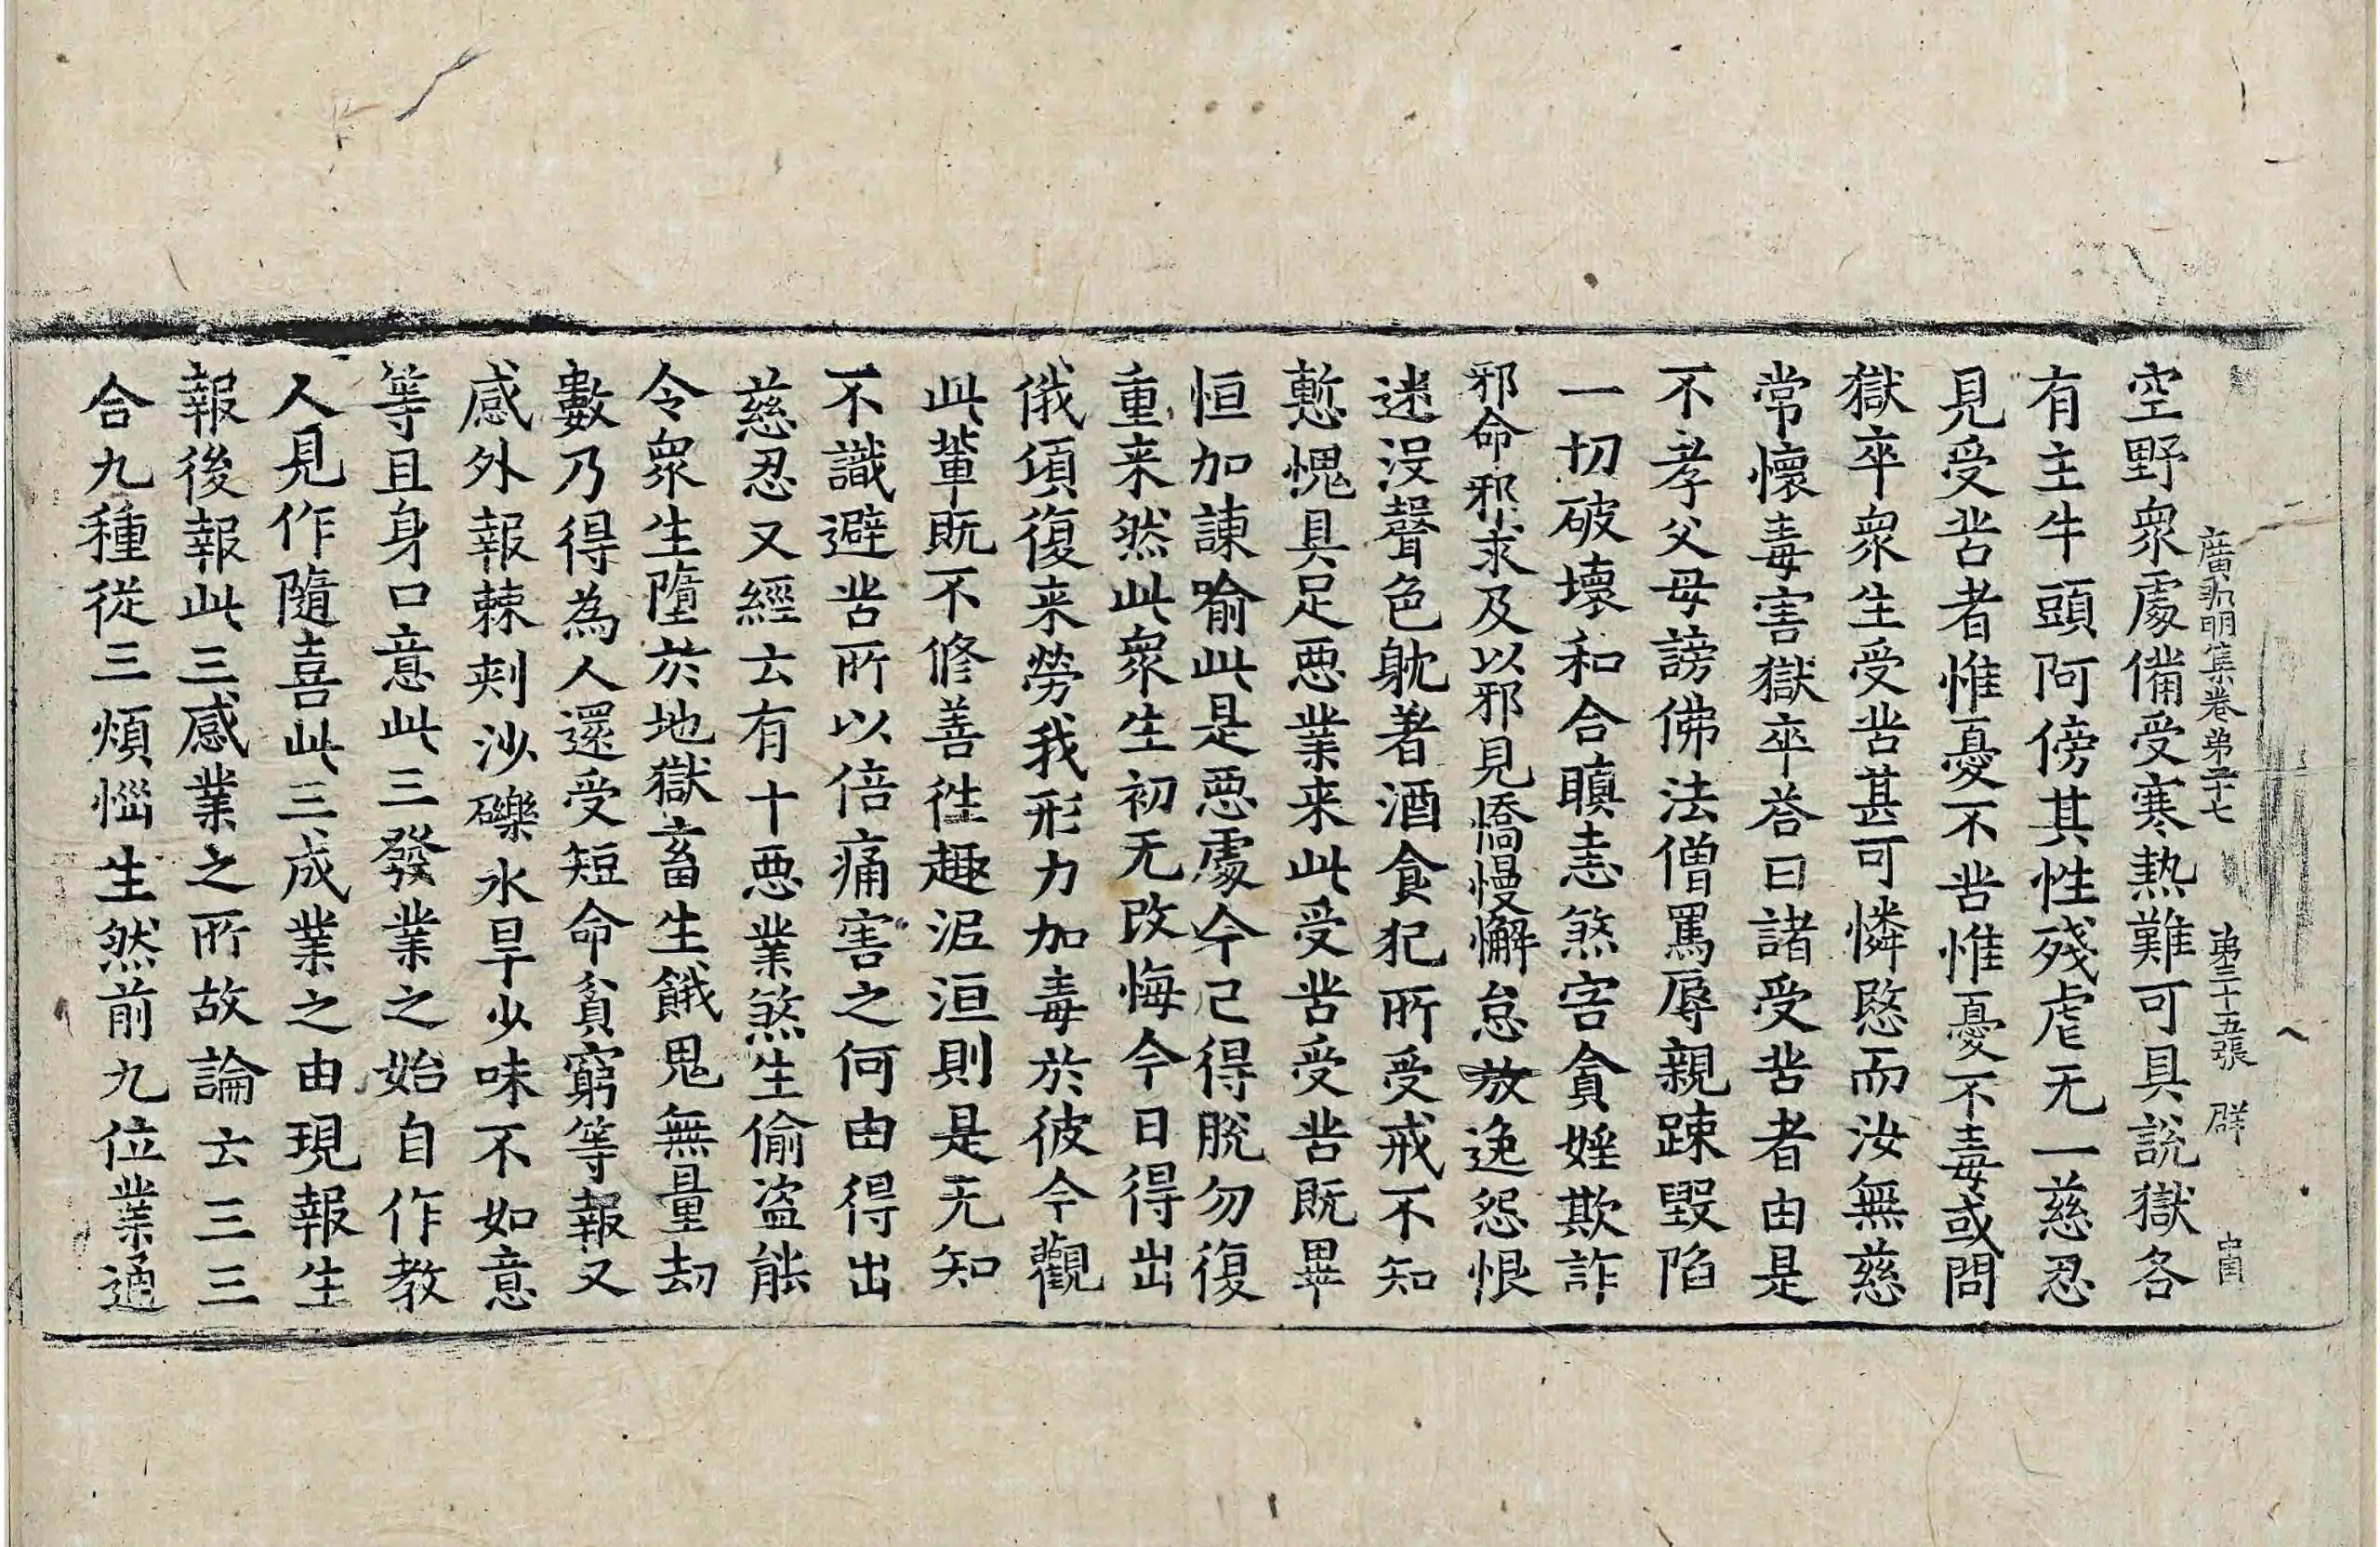 廣弘明集卷第二十七　第三十五張　群
空野衆處備受寒熱難可具說獄各
有主牛頭阿傍其性殘虐无一慈忍
見受苦者惟憂不苦惟憂不毒或問
獄卒衆生受苦甚可憐愍而汝無慈
常懷毒害獄卒荅曰諸受苦者由是
不孝父母謗佛法僧罵辱親踈毀陷
一切破壞和合瞋恚煞害貪婬欺詐
邪命邪求及以邪見憍慢懈怠放逸怨恨
迷沒聲色躭著酒食犯所受戒不知
慙愧具足惡業来此受苦受苦既畢
恒加諫喻此是惡處今已得脫勿復
重来然此衆生初无改悔今日得出
俄頃復来勞我形力加毒於彼今觀
此輩既不修善徃趣泥洹則是无知
不識避苦所以倍痛害之何由得出
慈忍又經云有十惡業煞生偷盜能
令衆生墮於地獄畜生餓鬼無量劫
數乃得為人還受短命貧窮等報又
感外報棘刺沙礫水旱少味不如意
等且身口意此三發業之始自作教
人見作隨喜此三成業之由現報生
報後報此三感業之所故論云三三
合九種從三煩惱生然前九位業通